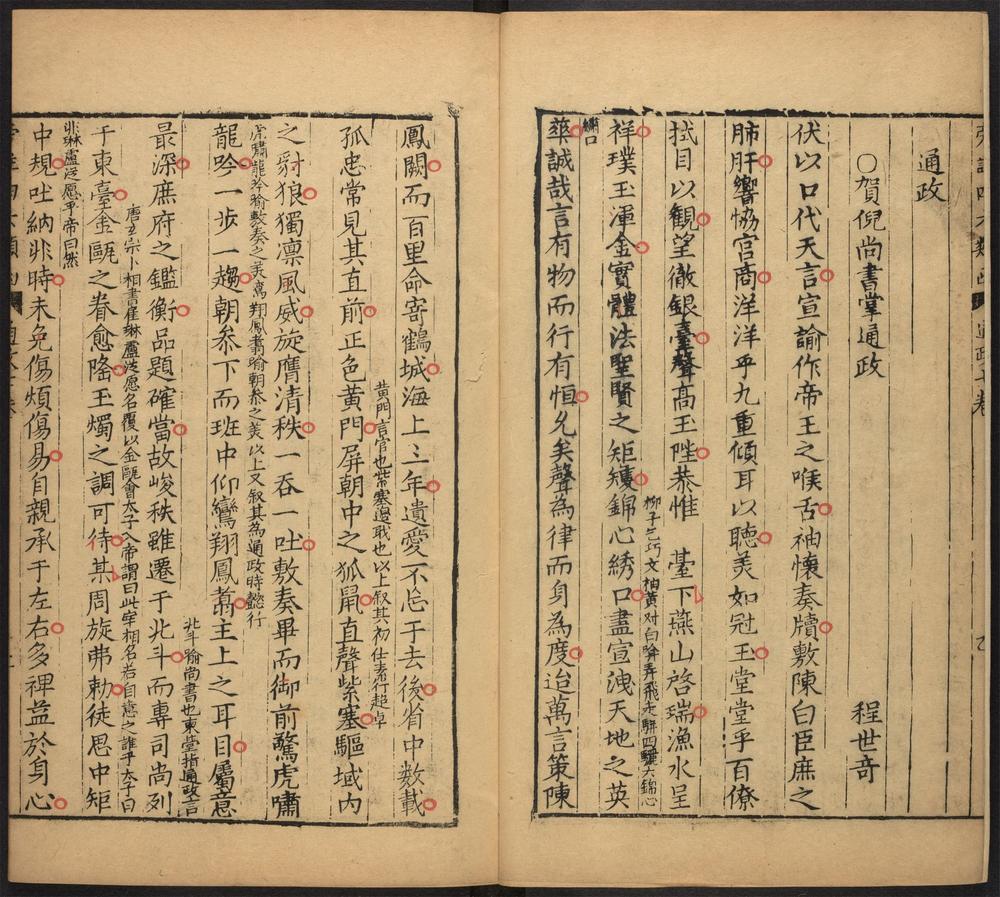 通政
○賀倪尚書掌通政 程世奇
伏以口代天言宣諭作帝王之喉舌袖懷奏牘敷陳白臣庶之
肺肝響協宮商洋洋乎九重傾耳以聽羙如冠玉堂堂乎百僚
拭目以観望徹銀臺聲高玉陛恭惟 臺下燕山啓瑞漁水呈
祥璞玉渾金實體法聖賢之矩矱錦心綉口盡宣洩天地之英
柳子乞巧文袖黄对白啽哢飛走駢四驪六錦心
繡口
華誠哉言有物而行有恒允矣聲為律而身為度迨萬言策陳
鳳闕而百里命寄鶴城海上三年遺愛不忘于去後省中数載
孤忠常見其直前正色黄門屏朝中之狐鼠直聲紫塞驅域内
黄門言官也紫塞邉戢也以上叙其初仕素行超卓
之豺狼獨凛風威旋膺清秩一吞一吐敷奏畢而御前驚虎嘯
虎嘯龍吟喻敷奏之羙鸞翔鳳翥喻朝叅之羙以上又叙其為通政時懿行
龍吟一歩一趨朝叅下而班中仰鸞翔鳳翥主上之耳目屬意
最深庶府之鑑衡品題確當故峻秩雖遷于北斗而專司尚列
北斗喻尚書也東臺指通政言
于東臺金甌之眷愈隆玉燭之調可待某周旋弗勅徒思中矩
唐玄宗卜相書崔琳盧泛愿名覆以金甌會太子入帝謂曰此宰相名若自意之誰乎太子曰
非琳盧泛愿乎帝曰然
中規吐納非時未免傷煩傷易自親承于左右多禆益於身心